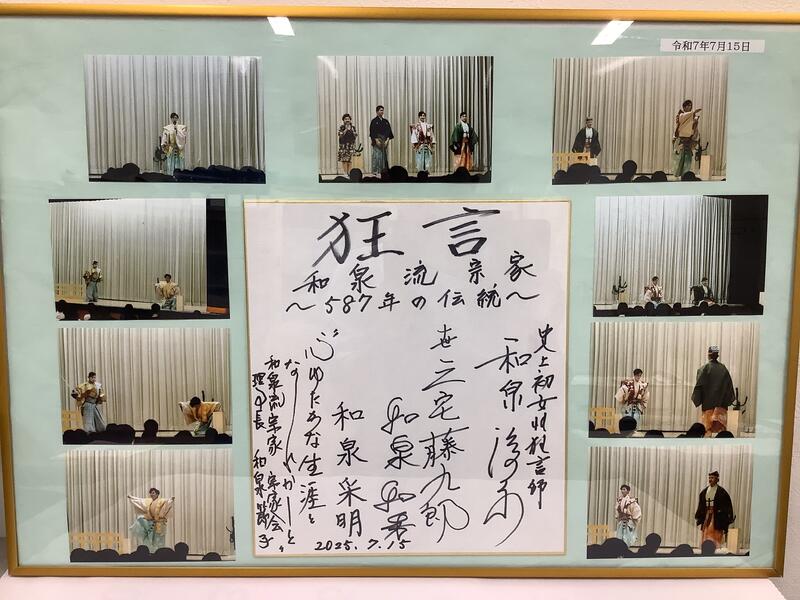 令和7年7月15日
狂言
和泉流宗家
～587年の伝統～
史上初女性狂言師
和泉淳子
三宅藤九郎
和泉和秀
和泉采明
心ゆたかな生涯を
和泉流宗家 宗家会
理事長 和泉節子
2025.7.15